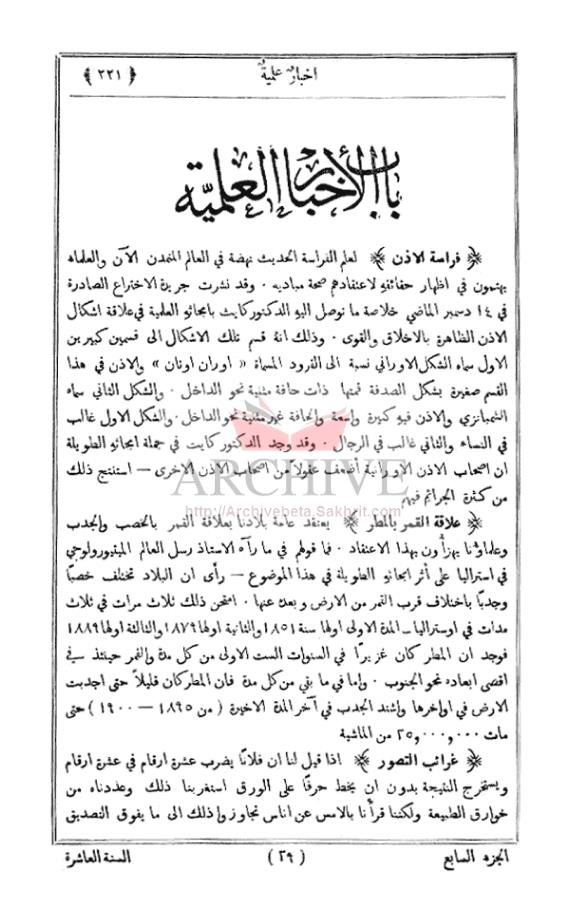 اخبار علمية
﴿ ٢٢١ ﴾
باب الأخبار العلمية
﴿ فراسة الاذن ﴾ لعلم الفراسة الحديث نهضة في العالم المتمدن الآن والعلماء
يهتمون في اظهار حقائقهِ لاعتقادهم صحة مباديه ٠ وقد نشرت جريدة الاختراع الصادرة
في ١٤ دسمبر الماضي خلاصة ما توصل اليهِ الدكتور كايت بابحاثهِ العلمية في علاقة اشكال
الاذن الظاهرة بالاخلاق والقوى ٠ وذلك انهُ قسم تلك الاشكال الى قسمين كبيرين
الاول سماه الشكل الاوراني نسبة الى القرود المسماة « اوران اوتان » والاذن في هذا
القسم صغيرة بشكل الصدفة قمتها ذات حافة مثنية نحو الداخل ٠ والشكل الثاني سماه
الشمبانزي والاذن فيهِ كبيرة واسعة والحافة غير مثنية نحو الداخل ٠ والشكل الاول غالب
في النساء والثاني غالب في الرجال ٠ وقد وجد الدكتور كايت في جملة ابحاثهِ الطويلة
ان اصحاب الاذن الاورانية أضعف عقولاً من اصحاب الاذن الاخرى — استنتج ذلك
من كثرة الجرائم فيهم
ARCHIVE
http://Archivebeta.Sakhrit.com
﴿ علاقة القمر بالمطر ﴾ يعتقد عامة بلادنا بعلاقة القمر بالخصب والجدب
وعلماؤنا يهزأون بهذا الاعتقاد ٠ فما قولهم في ما رآه الاستاذ رسل العالم الميتيورولوجي
في استراليا على أثر ابحاثهِ الطويلة في هذا الموضوع — رأى ان البلاد تختلف خصبًا
وجدبًا باختلاف قرب القمر من الارض وبعده عنها ٠ امتحن ذلك ثلاث مرات في ثلاث
مدات في اوستراليا — المدة الاولى اولها سنة ١٨٥١ والثانية اولها ١٨٧٩ والثالثة اولها ١٨٨٩
فوجد ان المطر كان غزيرًا في السنوات الست الاولى من كل مدة والقمر حينئذ في
اقصى ابعاده نحو الجنوب ٠ واما في ما بقي من كل مدة فان المطر كان قليلاً حتى اجدبت
الارض في اواخرها واشتد الجدب في آخر المدة الاخيرة ( من ١٨٩٥ — ١٩٠٠ ) حتى
مات ٢٥,٠٠٠,٠٠٠ من الماشية
﴿ غرائب التصور ﴾ اذا قيل لنا ان فلانًا يضرب عشرة ارقام في عشرة ارقام
ويستخرج النتيجة بدون ان يخط حرفًا على الورق استغربنا ذلك وعددناه من
خوارق الطبيعة ولكننا قرأنا بالامس عن اناس تجاوزوا ذلك الى ما يفوق التصديق
الجزء السابع
( ٢٩ )
السنة العاشرة